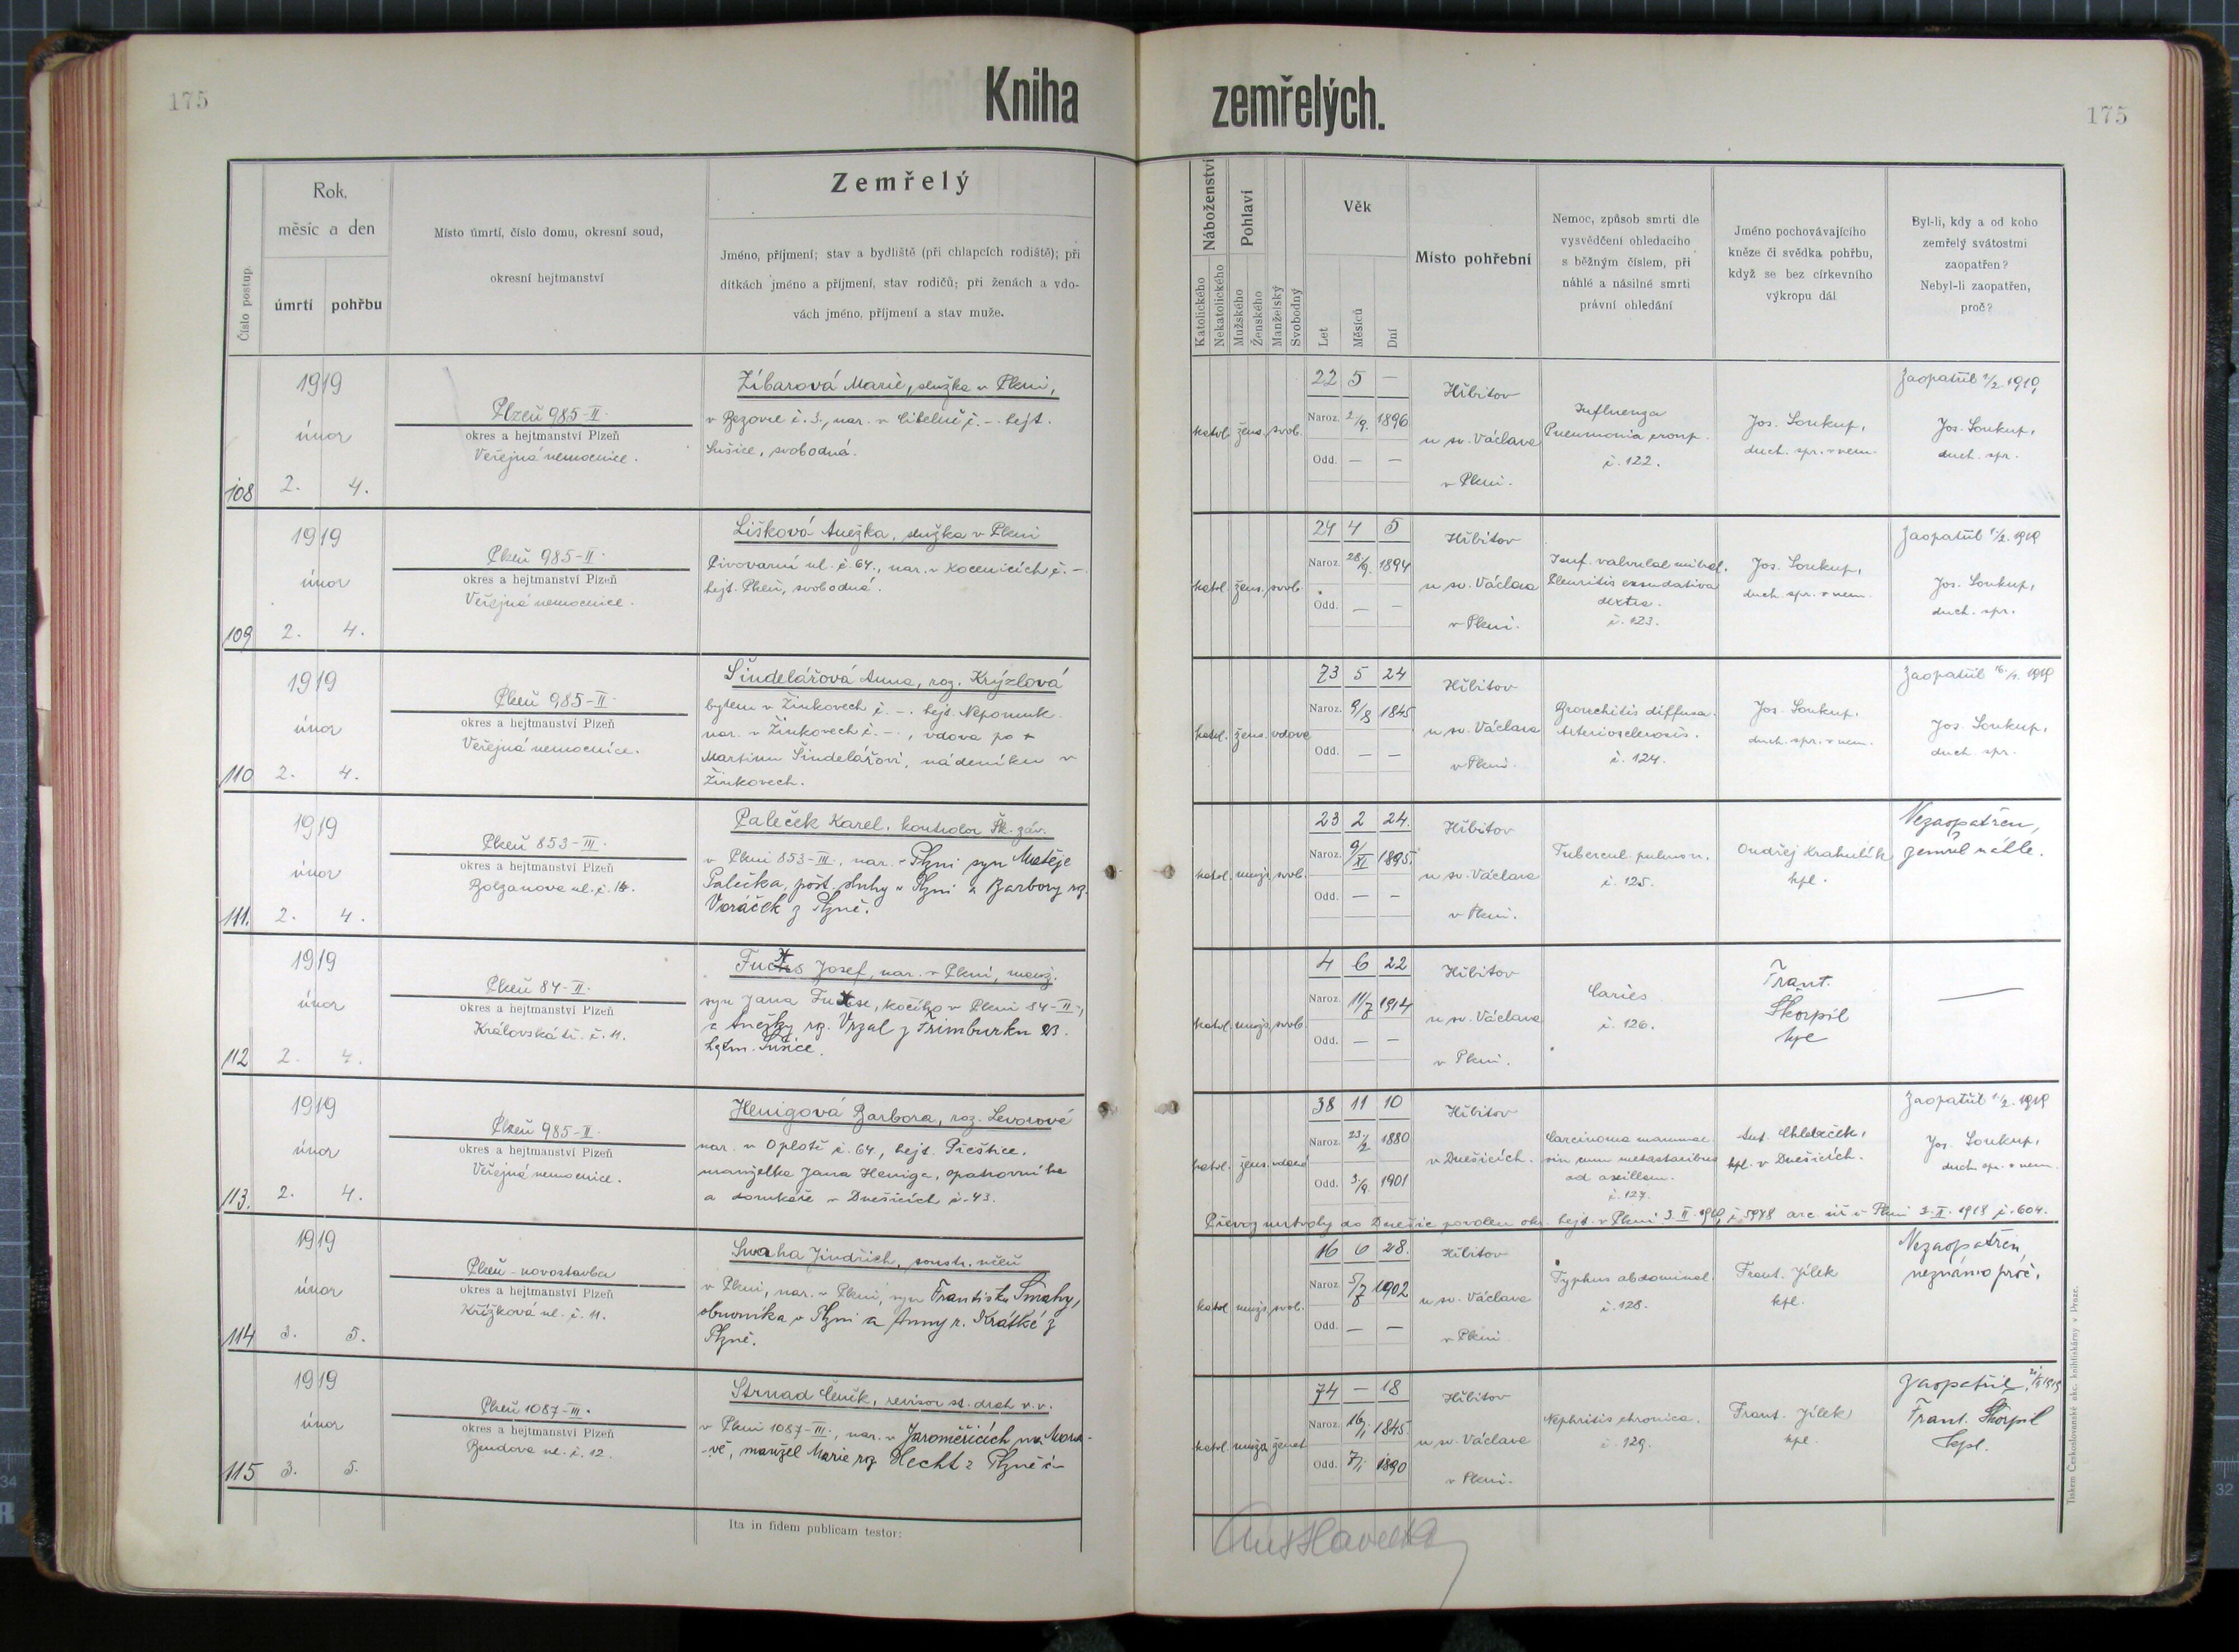 175
Kniha
zemřelých.
175
Číslo postup.
Rok,
měsíc a den
úmrtí
pohřbu
Místo úmrtí, číslo domu, okresní soud,
okresní hejtmanství
Zemřelý
Jméno, příjmení; stav a bydliště (při chlapcích rodiště); při
dítkách jméno a příjmení, stav rodičů; při ženách a vdo-
vách jméno, příjmení a stav muže.
Náboženství
Katolického
Nekatolického
Pohlaví
Mužského
Ženského
Manželský
Svobodný
Věk
Let
Měsíců
Dní
Místo pohřební
Nemoc, způsob smrti dle
vysvědčení ohledacího
s běžným číslem, při
náhlé a násilné smrti
právní ohledání
Jméno pochovávajícího
kněze či svědka pohřbu,
když se bez církevního
výkropu dál
Byl-li, kdy a od koho
zemřelý svátostmi
zaopatřen?
Nebyl-li zaopatřen,
proč?
108
1919
únor
2. 4.
Plzeň 985-II.
okres a hejtmanství Plzeň
Veřejná nemocnice.
Žíbarová Marie, služka v Plzni,
v Bezovce č. 3., nar. v Libětině č. -. hejt.
Sušice, svobodná.
katol. žens. svob.
22 5 —
Naroz. 2/9. 1896
Odd. — —
Hřbitov
u sv. Václava
v Plzni.
Influenza
Pneumonia croup.
č. 122.
Jos. Soukup,
duch. spr. v nem.
Zaopatřil 1/2. 1919,
Jos. Soukup,
duch. spr.
109
1919
únor
2. 4.
Plzeň 985-II.
okres a hejtmanství Plzeň
Veřejná nemocnice.
Lišková Anežka, služka v Plzni
Pivovarní ul. č. 64., nar. v Kocenicích č. -.
hejt. Plzeň, svobodná.
katol. žens. svob.
24 4 5
Naroz. 28/9. 1894
Odd. — —
Hřbitov
u sv. Václava
v Plzni.
Insuf. valvulae mitral.
Pleuritis exsudativa
dextra.
č. 123.
Jos. Soukup,
duch. spr. v nem.
Zaopatřil 1/2. 1919
Jos. Soukup,
duch. spr.
110
1919
únor
2. 4.
Plzeň 985-II.
okres a hejtmanství Plzeň
Veřejná nemocnice.
Šindelářová Anna, roz. Krýzlová
bytem v Žinkovech č. -. hejt. Nepomuk
nar. v Žinkovech č. -., vdova po +
Martinu Šindelářovi, nádeníku v
Žinkovech.
katol. žens. vdova
73 5 24
Naroz. 9/8 1845
Odd. — —
Hřbitov
u sv. Václava
v Plzni.
Bronchitis diffusa.
Arteriosclerosis.
č. 124.
Jos. Soukup,
duch. spr. v nem.
Zaopatřil 16./1. 1919
Jos. Soukup,
duch. spr.
111.
1919
únor
2. 4.
Plzeň 853-III.
okres a hejtmanství Plzeň
Bolzanova ul. č. 14.
Paleček Karel, kontrolor Šk. záv.
v Plzni 853-III., nar. v Plzni syn Matěje
Palečka, pošt. sluhy v Plzni a Barbory roz.
Voráček z Plzně.
katol. mužs. svob.
23 2 24.
Naroz. 9/XI 1895.
Odd. — —
Hřbitov
u sv. Václava
v Plzni.
Tubercul. pulmon.
č. 125.
Ondřej Krahulík
kpl.
Nezaopatřen,
zemřel náhle.
112
1919
únor
2. 4.
Plzeň 84-II.
okres a hejtmanství Plzeň
Královská tř. č. 11.
Fuchs Josef, nar. v Plzni, manž.
syn Jana Fuxse, kočího v Plzni 84-II.,
a Anežky roz. Vrzal z Frimburku 23.
hejtm. Sušice.
katol. mužs. svob.
4 6 22
Naroz. 11/7 1914
Odd. — —
Hřbitov
u sv. Václava
v Plzni.
Caries
č. 126.
Frant.
Škorpil
kpl
—
113.
1919
únor
2. 4.
Plzeň 985-II.
okres a hejtmanství Plzeň
Veřejná nemocnice.
Henigová Barbora, roz. Levorová
nar. v Oplotě č. 64., hejt. Přeštice,
manželka Jana Heniga, opatrovníka
a domkáře v Dnešicích č. 43.
katol. žens. vdaná
38 11 10
Naroz. 23/2 1880
Odd. 3/9. 1901
v Dnešicích.
Carcinoma mammae
sin cum metastasibus
ad axillam.
č. 127.
kpl. v Dnešicích.
Zaopatřil 1./2. 1919
Jos. Soukup,
duch. spr. v nem.
Převoz mrtvoly do Dnešic povolen okr. hejt. v Plzni 3. II. 1919, č. 5978 arc. úř. v Plzni 3. II. 1918 č. 604.
114
1919
únor
3. 5.
Plzeň - novostavba
okres a hejtmanství Plzeň
Křížková ul. č. 11.
Smaha Jindřich, soustr. učeň
v Plzni, nar. v Plzni, syn Františka Smahy,
obuvníka v Plzni a Anny r. Krátké z
Plzně.
katol. mužs. svob.
16 6 28.
Naroz. 5/7 1902
Odd. — —
Hřbitov
u sv. Václava
v Plzni
Typhus abdominal.
č. 128.
Frant. Jílek
kpl.
Nezaopatřen,
neznámo proč.
115
1919
únor
3. 5.
Plzeň 1087-III.
okres a hejtmanství Plzeň
Bendova ul. č. 12.
Strnad Čeněk, revisor st. drah v. v.
v Plzni 1087-III., nar. v Jaroměřicích na Mora-
-vě, manžel Marie roz. Hecht z Plzně č-
katol. mužs. ženat
74 — 18
Naroz. 16/1 1845.
Odd. 7/1. 1890
Hřbitov
u sv. Václava
v Plzni.
Nephritis chronica.
č. 129.
Frant. Jílek
kpl.
Zaopatřil 1919
Frant. Škorpil
kpl.
Ita in fidem publicam testor:
Tiskem Československé akc. knihtiskárny v Praze.